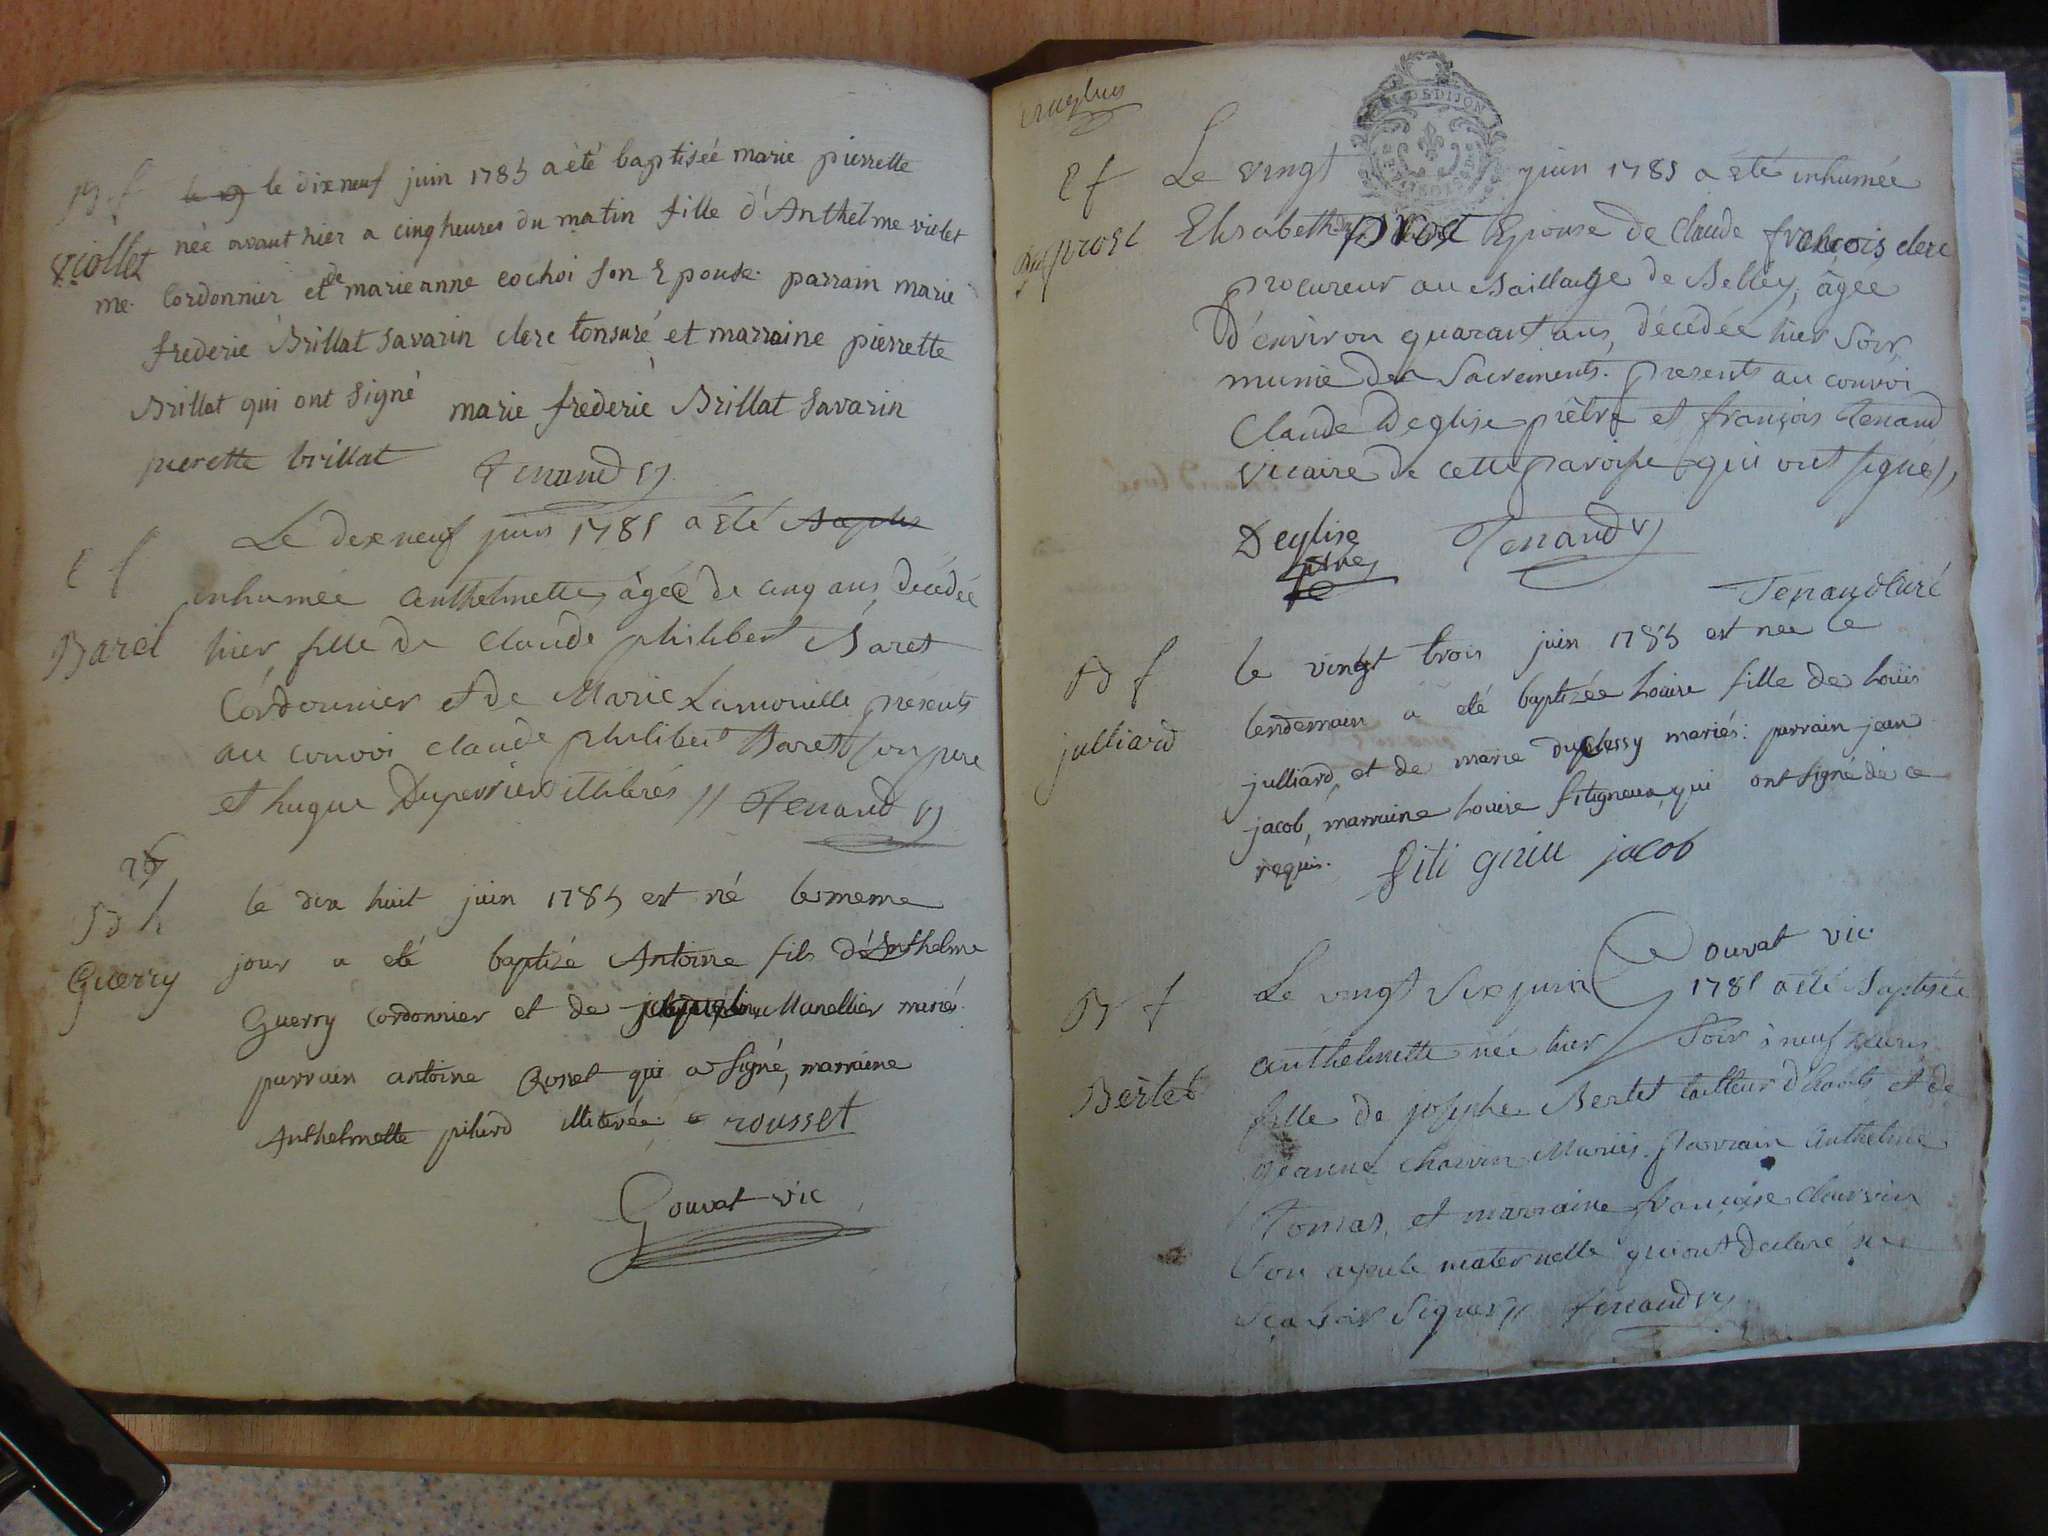 B f
viollet
le dixneuf juin 1785 a été baptiseé marie pierrette
née avant hier a cinq heures du matin fille d'Anthelme violet
me. Cordonnier et de marieanne cochoi son Epouse. parrain marie
frederic Brillat Savarin clerc tonsuré et marraine pierrette
Brillat qui ont signé marie frederic Brillat Savarin
pierette brillat Tenand v
E f
Baret
Le dixneuf juin 1785 a été
inhumée anthelmette, âgée de cinq ans, decédée
hier, fille de Claude philibert Baret
Cordonnier et de Marie Lamouille présents
au convoi claude philibert Baret son pere
et hugue Duperrier illiterés // Tenand v
B h
Guerry
le dix huit juin 1785 est né le meme
jour a eté baptizé Antoine fils d'Anthelme
Guerry cordonnier et de Munellier mariés.
parrain antoine qui a signé, marraine
Anthelmette pilurd illiterée. rousset
Gouvat vic
E f
duprost
Le vingt juin 1785 a été inhumée
Elisabeth prost Epouse de Claude françois clerc
procureur au Bailliage de Belley, âgée
d'environ quarant ans, décédée hier soir,
munie des Sacrements. presents au convoi
Claude Deglise prêtre et françois Tenand
vicaire de cette paroisse qui ont signés,
Deglise Tenand v
ptre
Tenand Curé
B f
julliard
le vingt trois juin 1785 est nee le
lendemain a eté baptizée Louise fille de Louis
julliard, et de marie duplessy mariés: parrain jean
jacob, marraine Louise fitigneux, qui ont signé de ce
requis. fiti gniu jacob
Gouvat vic
B f
Bertet
Le vingt six juin 1785 a été Baptisée
anthelmette née hier soir à neuf heures
fille de josephe Bertet tailleur d'habits et de
jeanne chauvin Mariés. Parrain Anthelme
Tomas, et marraine françoise chauvin
son ayeule maternelle qui ont declaré ne
sçavoir signer // Tenand v